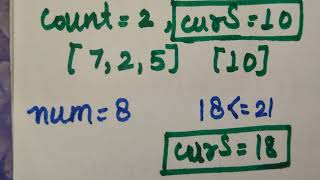 count = 2, curS = 10
[7, 2, 5] [10]
num = 8 18 <= 21
curS = 18